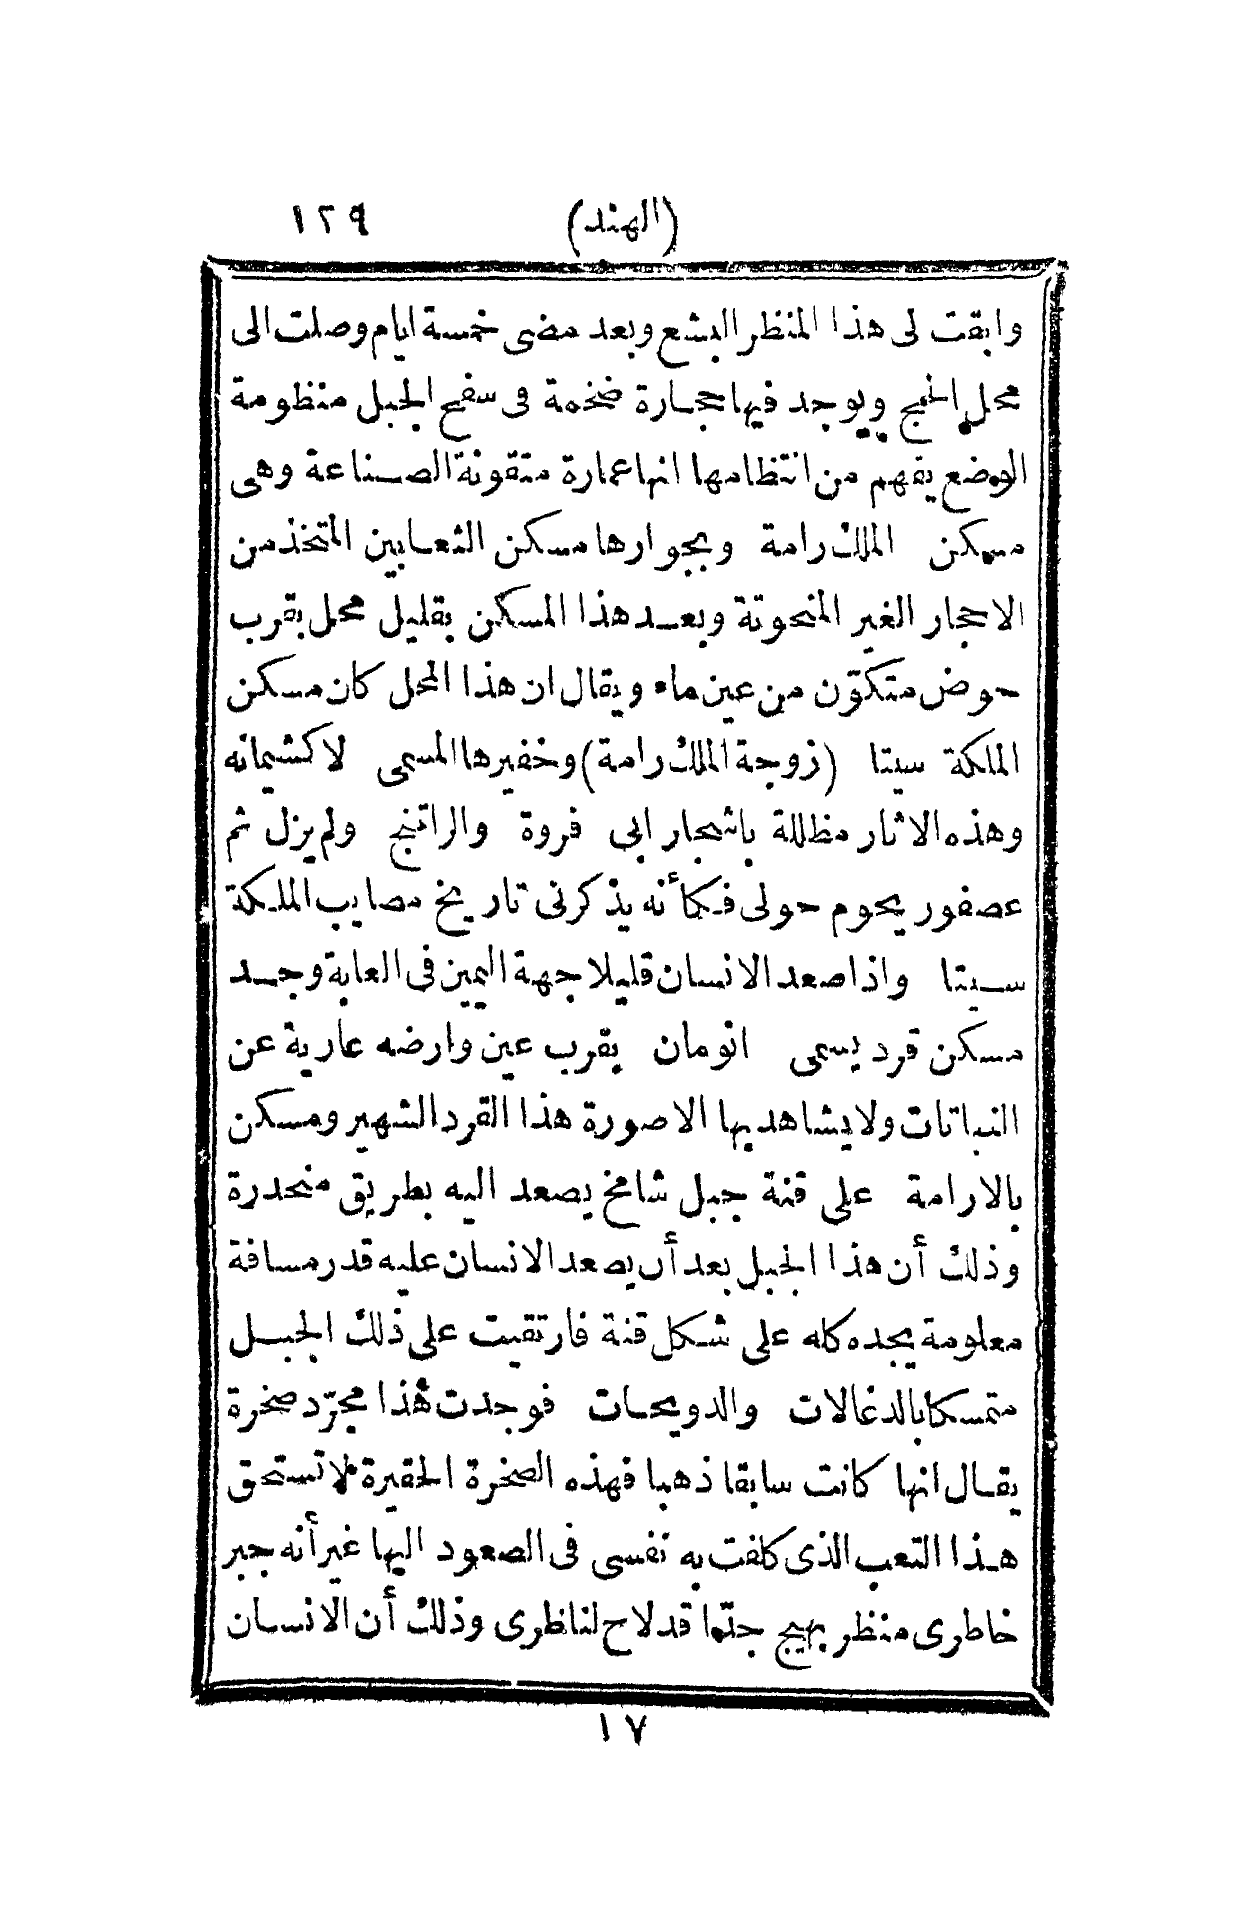 (الهند) ١٢٩
وابقت لى هذا المنظر البشع وبعد مضى خمسة ايام وصلت الى
محل الحج ويوجد فيها حجارة ضخمة فى سفح الجبل منظومة
الوضع يفهم من انتظامها انها عمارة متقونة الصناعة وهى
مسكن الملك رامة وبجوارها مسكن الثعابين المتخذ من
الاحجار الغير المنحوتة وبعد هذا المسكن بقليل محل بقرب
حوض متكوّن من عين ماء ويقال ان هذا المحل كان مسكن
الملكة سيتا (زوجة الملك رامة) وخفيرها المسمى لاكشيمانه
وهذه الاثار مظللة باشجار ابى فروة والراتنج ولم يزل ثم
عصفور يحوم حولى فكأنه يذكرنى تاريخ مصايب الملكة
سيتا واذا صعد الانسان قليلا جهة اليمين فى الغابة وجد
مسكن قرد يسمى انومان يقرب عين وارضه عارية عن
النباتات ولا يشاهد بها الا صورة هذا القرد الشهير ومسكن
بالارامة على قنة جبل شامخ يصعد اليه بطريق منحدرة
وذلك أن هذا الجبل بعد أن يصعد الانسان عليه قدر مسافة
معلومة يجده كله على شكل قنة فارتقيت على ذلك الجبل
متمسكا بالدغالات والدويحات فوجدت هٰذا مجرّد صخرة
يقال انها كانت سابقا ذهبا فهذه الصخرة الحقيرة لا تستحق
هذا التعب الذى كلفت به نفسى فى الصعود اليها غير أنه جبر
خاطرى منظر بهيج جدّا قد لاح لناظرى وذلك أن الانسان
١٧